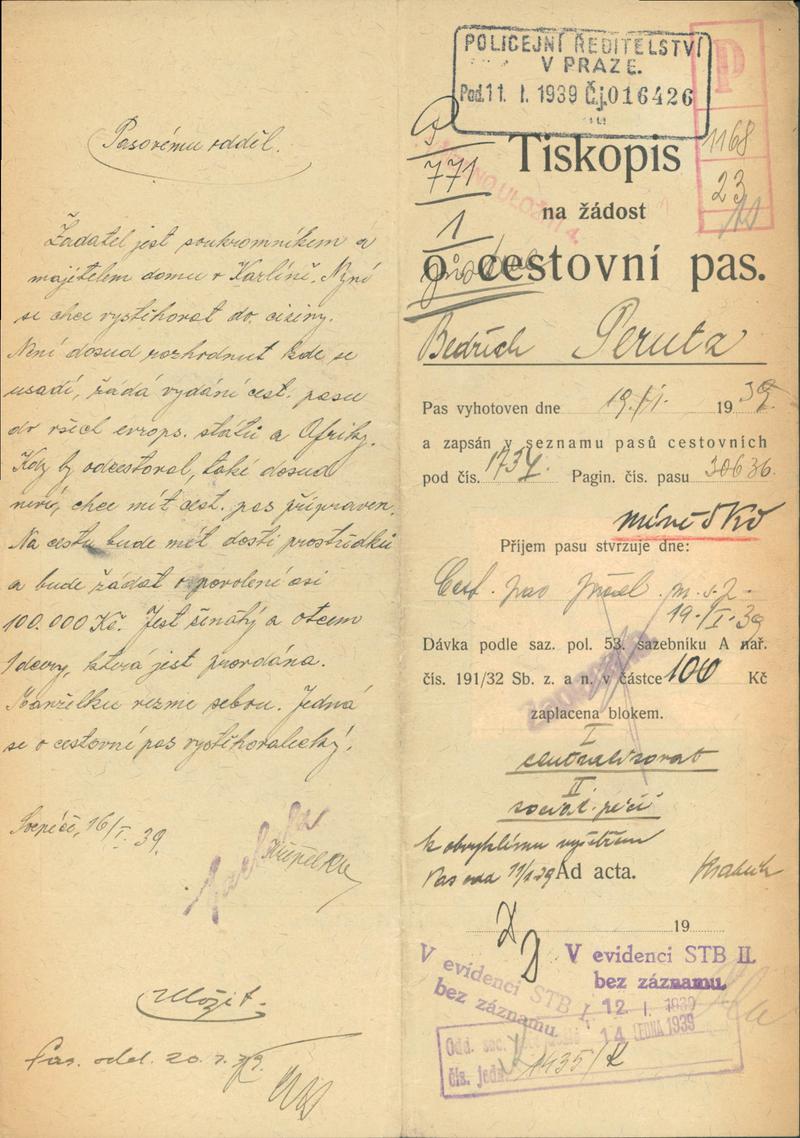 Pasovému odděl.
Žadatel jest soukromníkem a
majitelem domu v Karlíně. Nyní
se chce vystěhovat do ciziny.
Není dosud rozhodnut kde se
usadí, žádá vydání cest. pasu
do všech evrops. států a Afriky.
Kdy by odcestoval, také dosud
neví, chce mít cest. pas připraven.
Na cestu bude mít dosti prostředků
a bude žádat o povolení asi
100.000 Kč. Jest ženatý a otcem
1 dcery, která jest provdána.
Manželku vezme sebou. Jedná
se o cestovní pas vystěhovalecký.
16/I. 39.
Uložit.
Pas. odd. 20.
POLICEJNÍ ŘEDITELSTVÍ
V PRAZE.
Pod. 11. I. 1939 Č.j. 016426
P
1168
23
771
1
Tiskopis
na žádost
o cestovní pas.
Bedřich Peruta
Pas vyhotoven dne 19./I. 1939.
a zapsán v seznamu pasů cestovních
pod čís. 1737. Pagin. čís. pasu 30636.
Příjem pasu stvrzuje dne:
Cest. pas
19./I. 39
Dávka podle saz. pol. 53. sazebníku A nař.
čís. 191/32 Sb. z. a n. v částce 100 Kč
zaplacena blokem.
I
centralisovat
II
sociál. péči
k obvyklému vyšetření
11/1 39 Ad acta.
19
V evidenci STB II.
bez záznamu.
V evidenci STB I.
bez záznamu.
12. I. 1939
14. LEDNA 1939
Odd. soc.
čís. jedn. 1435/K